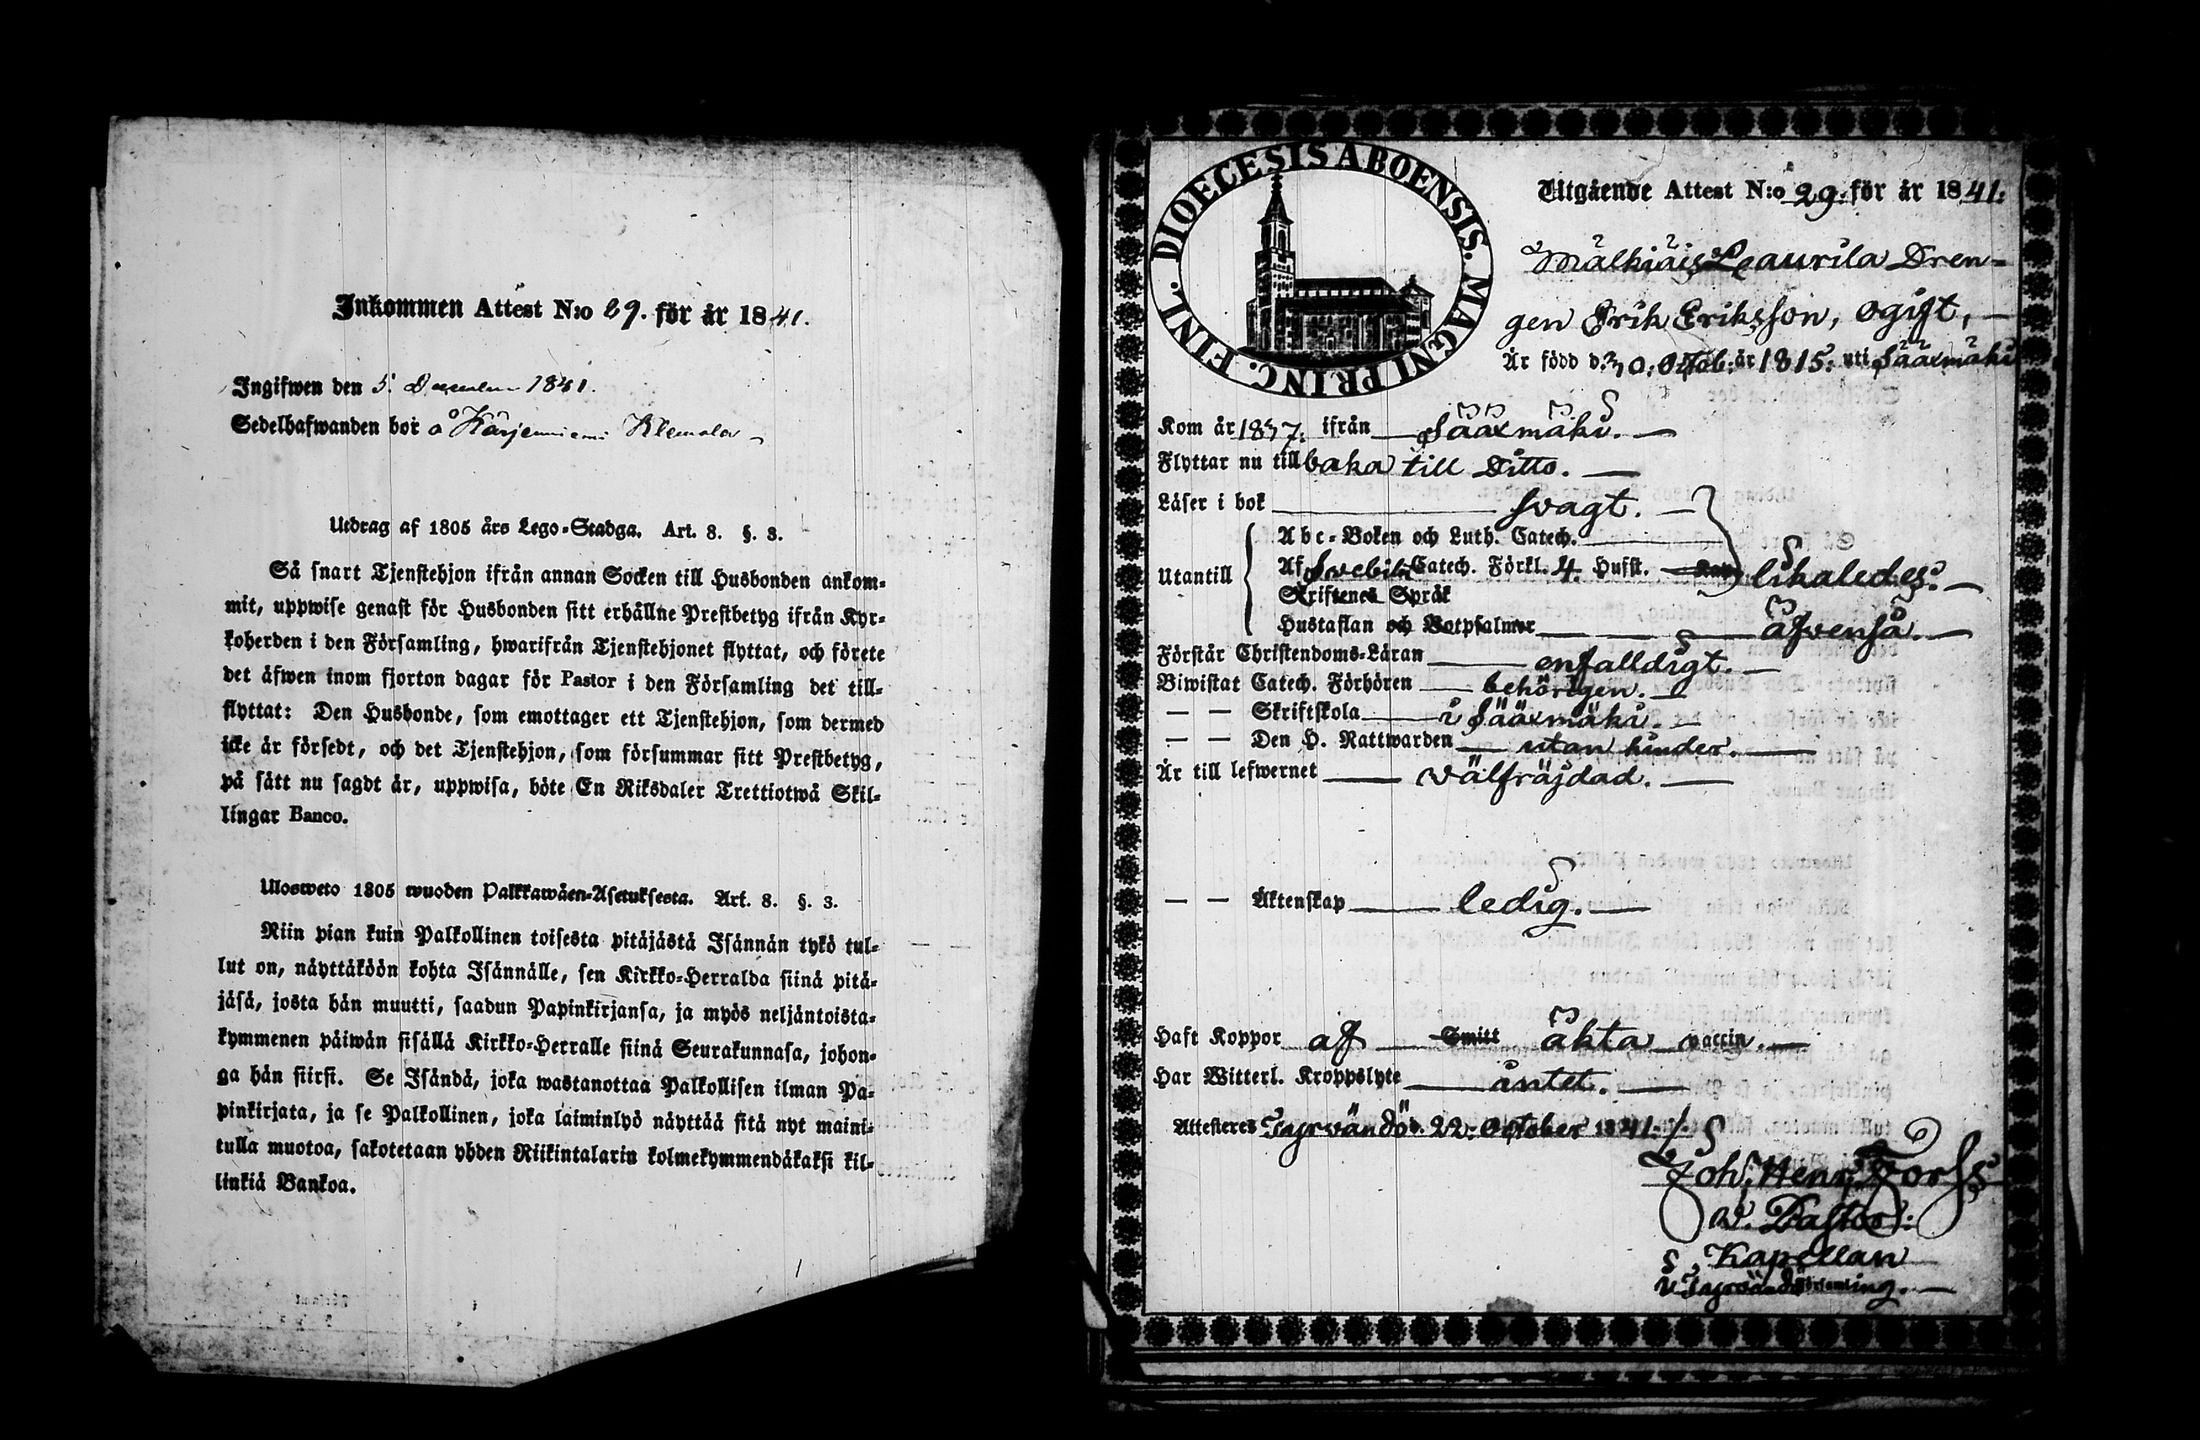 Inkommen Attest N:o 29. för år 1841.
Ingifwen den 5 December 1841.
Sedelhafwanden bor å Kärjenniemi Klemola
Utdrag af 1805 års Lego-Stadga. Art. 8. §. 3.
Så snart Tjenstehjon ifrån annan Socken till Husbonden ankom-
mit, uppwise genast för Husbonden sitt erhållne Prestbetyg ifrån Kyr-
koherden i den Församling, hwarifrån Tjenstehjonet flyttat, och förete
det äfwen inom fjorton dagar för Pastor i den Församling det till-
flyttat: Den Husbonde, som emottager ett Tjenstehjon, som dermed
icke är försedt, och det Tjenstehjon, som försummar sitt Prestbetyg,
på sätt nu sagdt är, uppwisa, böte En Riksdaler Trettiotwå Skil-
lingar Banco.
Ulosweto 1805 wuoden Palkkawäen-Asetuksesta. Art. 8. §. 3.
Niin pian kuin Palkollinen toisesta pitäjästä Isännän tykö tul-
lut on, näyttäköön kohta Isännälle, sen Kirkko-Herralda siinä pitä-
jäsä, josta hän muutti, saadun Papinkirjansa, ja myös neljäntoista-
kymmenen päiwän sisällä Kirkko-Herralle siinä Seurakunnasa, johon-
ga hän siirsi. Se Isändä, joka wastanottaa Palkollisen ilman Pa-
pinkirjata, ja se Palkollinen, joka laiminlyö näyttää sitä nyt maini-
tulla muotoa, sakotetaan yhden Riikintalarin kolmekymmendäkaksi kil-
linkiä Bankoa.
DIOECESIS ABOENSIS. MAGNI PRINC. FINL.
Utgående Attest N:o 29. för år 1841.
Mälkiäis Laurila Dren-
gen Erik Eriksson, ogift,
Är född d. 30. Octob. år 1815. uti Sääxmäki
Kom år 1837. ifrån Sääxmäki.
Flyttar nu tillbaka till Ditto.
Läser i bok svagt.
Abc-Boken och Luth. Catech.
Utantill Af Svebilii Catech. Förkl. 4. Hufst. likaledes.
Skriftenes Språk
Hustaflan och Botpsalmer äfvenså.
Förstår Christendoms-Läran enfalldigt.
Biwistat Catech. Förhören behörigen.
— — Skriftskola i Sääxmäki.
— — Den H. Nattwarden utan hinder.
Är till lefwernet välfräjdad.
— — Äktenskap ledig.
Haft Koppor af Smitt äkta vaccin.
Har Witterl. Kroppslyte intet.
Attesteres Tyrvändö d. 22. October 1841.
Joh. Henr. Forss
v. Pastor.
Kapellan
i Tyrvändö Församling.